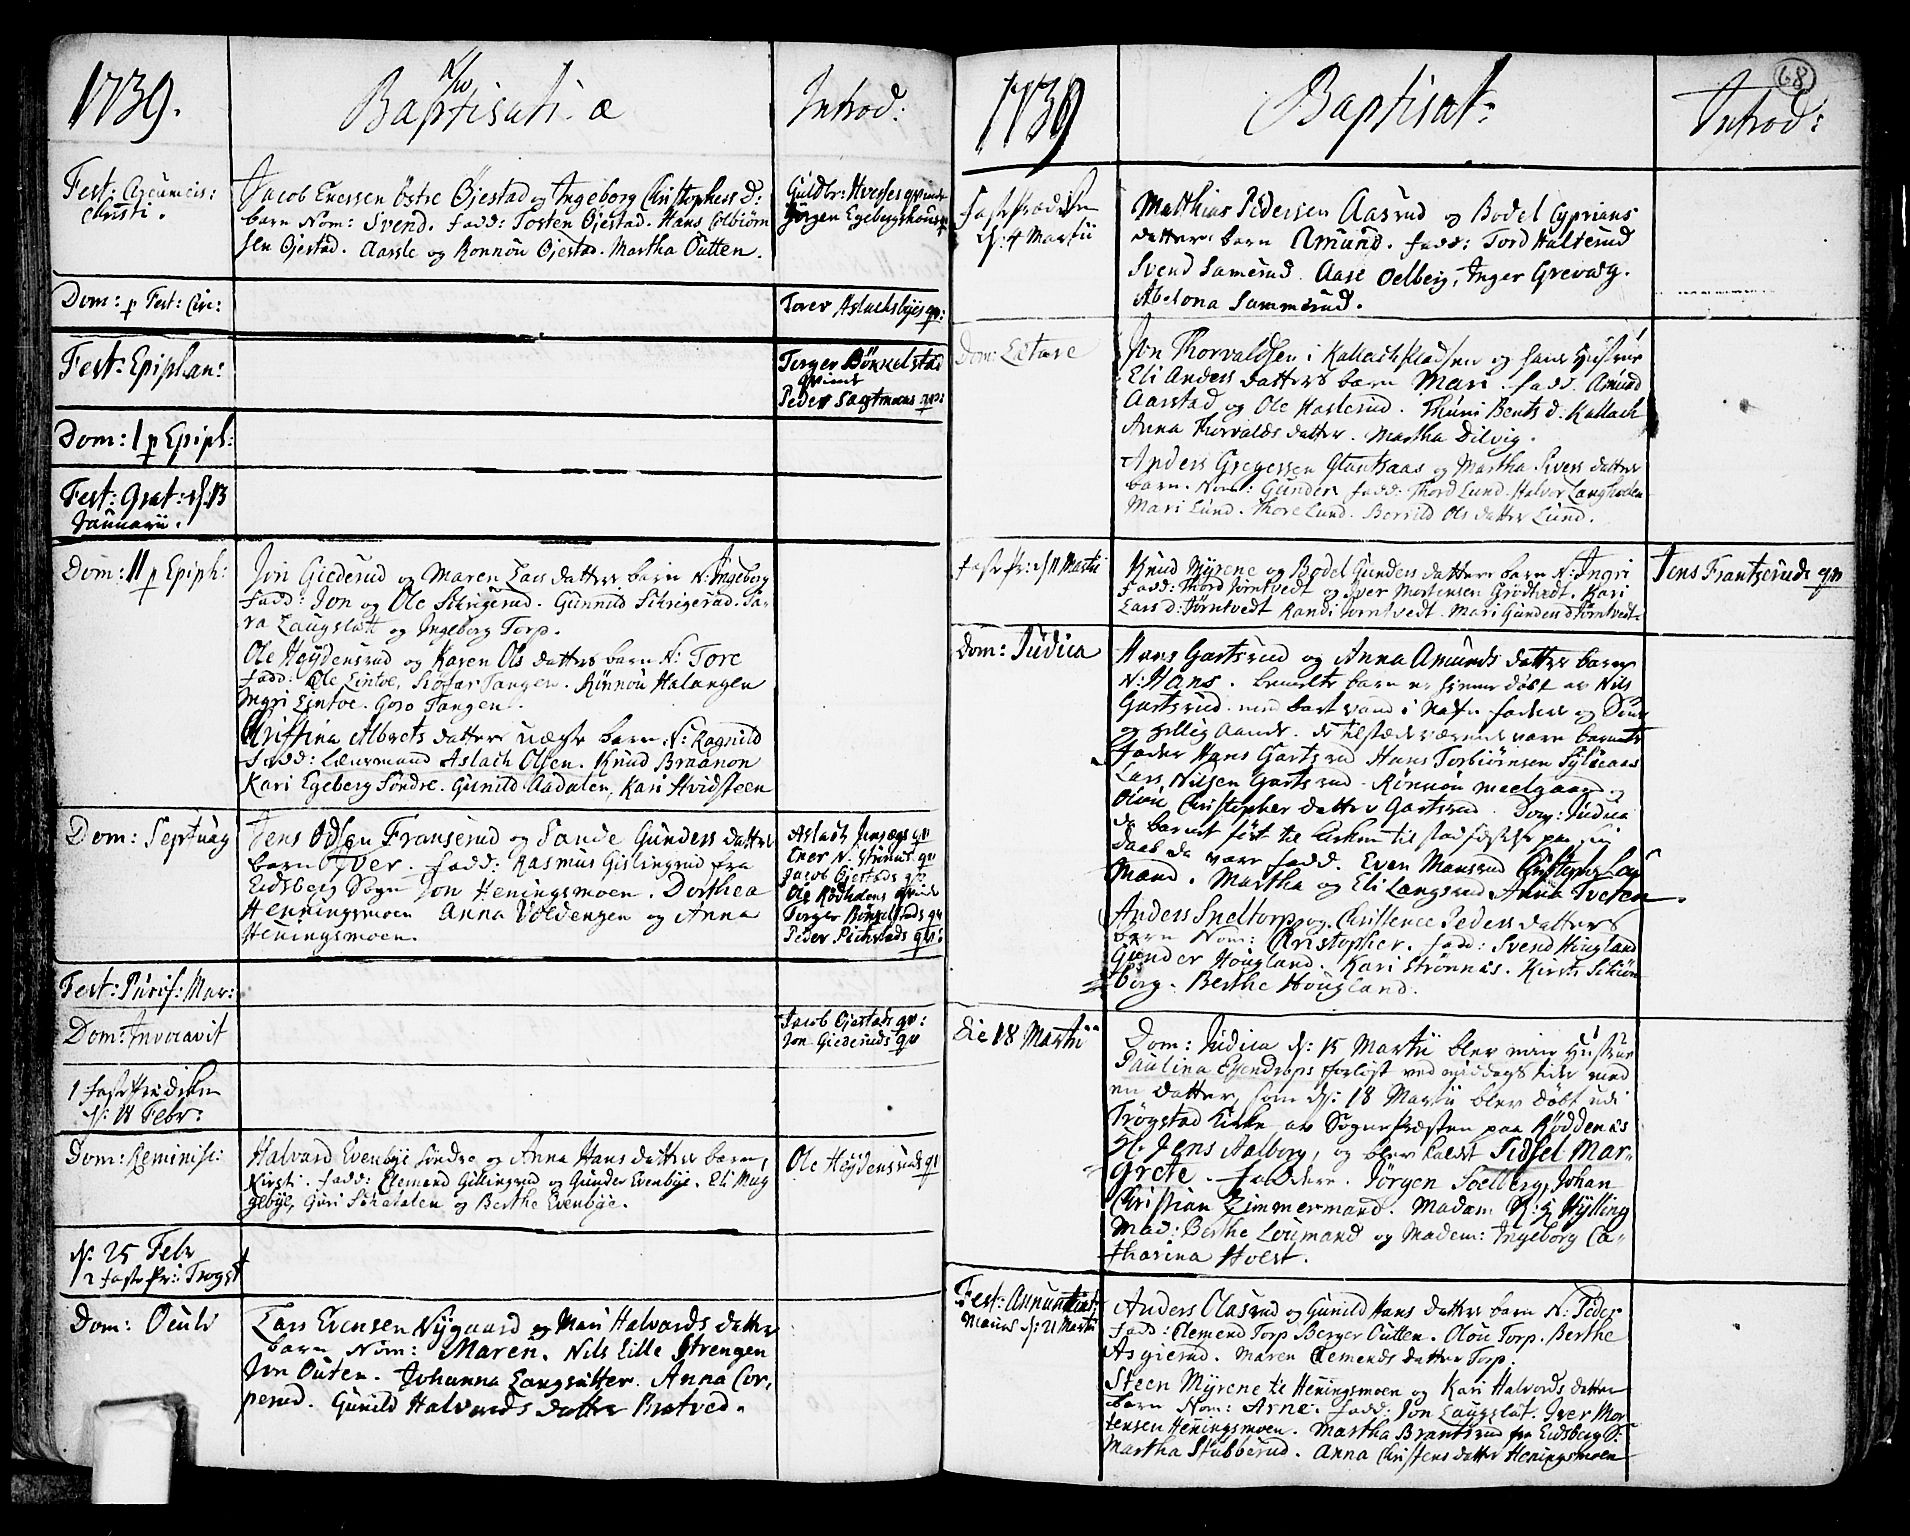 1739.
Baptisati.a
Introd:
Fest: Circumcis:
Christi.
Jacob Enersen Östre Öjestad og Ingeborg Christophers D:
barn Nom: Svend. Fadd: Tosten Öjestad. Hans Colbiörn
sen Öjestad. Aasle og Ronnou Öjestad. Martha Outten.
Guldbr: qvinde
Jörgen Egebergs
Dom: p Fest: Circ:
Torer Aslachsbyes qv:
Fest: Epiphan:
Torger Bönkelstad
qvinde
Peder Sagtmoens qv:
Dom: 1 p Epiph:
Fest: Grat: d. 13
Januarii.
Dom: 11 p Epiph:
Jon Giederud og Maren Lars datters barn N: Ingeborg
Fadd: Jon og Ole Sikrigerud. Gunnild Sikrigerud. Sa-
ra Laugslatt og Ingeborg Torp.
Ole Höydensrud og Karen Ols datters barn N: Tore
Fadd: Ole Lintoe, Siofar Tangen. Rönnou Halangen
Ingri Lintoe. Goro Tangen.
Christina Albrets datters uægte barn N: Ragnild
Fadd: Lensmand Aslach Olsen. Knud Braanon
Kari Egeberg Söndre. Gunild Aadalen, Kari Hvidsteen
Dom: Septuag
Jens Olsen Franserud og Sande Gunders datters
barn Iver. Fadd: Rasmus Gislingrud fra
Eidsberg Sogn Jon Heningsmoen. Dorthea
Henningsmoen Anna Voldengen og Anna
Heningsmoen.
Aslach qv
Ener N. qv
Jacob Öjestads qv
Ole Rödholens qvinde
Torger Bönkelstads qv
Peder Pichstads qv:
Fest: Purif: Mar:
Dom: Invocavit
Jacob Öjestads qv:
Jon Giederuds qv
1 Faste Prædiken
d: 18 Febr:
Dom: Reminisc:
Halvard Evenbye Söndre og Anna Hans datters barn,
Kirsti. Fadd: Clemend Gillingrud og Gunder Evenbye. Eli Mug
gebye, Guri Skadalen og Berthe Evenbye.
Ole Höydensruds qv
d: 25 Febr
2 Faste Pr: Trogst
Dom: Oculi
Lars Evensen Nygaard og Mari Halvards datters
barn Nom: Maren. Nils Lille Strengen
Jon Outen. Johanna Langsætter. Anna Cor-
perud. Gunild Halvards datter Brotved.
68
1739
Baptisat:
Introd:
Faste Prædiken
d: 4 Martii
Matthias Pedersen Aasrud og Bodel Cyprians
datters barn Amund. Fadd: Tord Halterud
Svend Samerud. Aase Oelberg, Inger Grevaag.
Abelona Sammerud.
Dom: Lætare
Jon Thorvaldsen i Kallach Pladsen og hans Hustrue
Eli Anders datters barn Mari. Fadd. Amund
Aarstad og Ole Hasterud. Thuni Bents d. Kallach
Anna Thorvalds datter. Martha Dilvig.
Anders Gregersen Glantsaas og Martha Sivers datters
barn. Nom: Gunder Fadd: Thord Lund. Halvor Langholen
Mari Lund. Thore Lund. Borrild Ols datter Lund.
Faste Pr: d 11 Martii
Knud Myrene og Bodel Gunders datters barn N: Ingri
Fadd: Thord Torntvedt og Iver Mortensen Grödtvedt. Kari
Lars d: Törntvedt Randi Torntvedt. Mari Gunders d Törntvedt
Jens Frantserude qv
Dom: Judica
Hans Gartsrud og Anna Amunds datters barn
N: Hans. bemelte barn er hiemmedöbt av Nils
Gartsrud med bart vand i Nafn Faders og Söns
og hellig Aands. de tilstædeværende vare barnets
Fader Hans Gartsrud Hans Torbiörnsen
Lars Nilsen Gartsrud. Rönnou Meelgaard og
Olou Christopher datter Gartsrud. Dom: Judica
da barnet fört til Kirken til stadfæstelse paa sin
daab da vare Fadd. Even Mansrud Christopher
mand. Martha og Eli Langsrud Anna Tveten.
Anders Sneltorp og Christence Peders datters
barn Nom: Christopher. Fadd: Svend Hougland
Gunder Hougland. Kari Strönnæs. Kirsti Skiön
borg. Berthe Hougland.
Die 18 Martii
Dom: Judica d: 15 Martii blev min Hustrue
Paulina Esendrops forlöst ved middags tider med
en Datter, som d: 18 Martii blev döbt udi
Trögstad Kirke av Sogne Præsten paa Röddenæs
Hr. Jens Aalborg, og blev kaldt Sidsel Mar-
grete. Faddere. Jörgen Soelberg, Johan
Christian Zimmermand. Madam Hylling
Mad: Berthe Loumand og Madem: Ingeborg Ca-
tharina Holst.
Fest: Annuntiat:
Mariæ d: 21 Martii
Anders Olasrud og Gunild Hans datters barn N: Peder
Fadd: Clemend Torp Berger Outten. Olou Torp. Berthe
Asgierud. Maren Clemends datter Torp.
Steen Myrene til Heningsmoen og Kari Halvords datters
barn Nom: Arne. Fadd: Jon Laugslat. Iver Mor
tensen Heningsmoen. Martha Brantsrud fra Eidsberg S:
Martha Stubberud. Anna Christens datter Heningsmoen